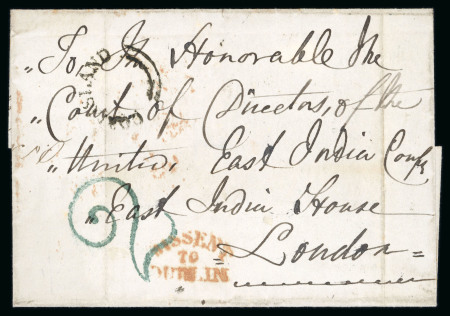 "To The Honorable The
"Court of Directors, of the
"United, East India Compy
"East India House
London =
2
MISSENT
TO
DUBLIN